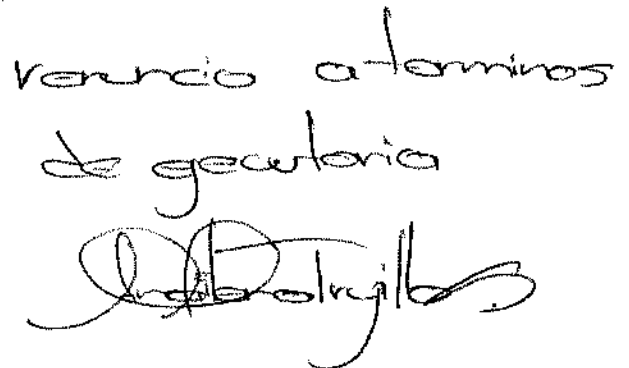 renuncio a terminos
de gecutoria